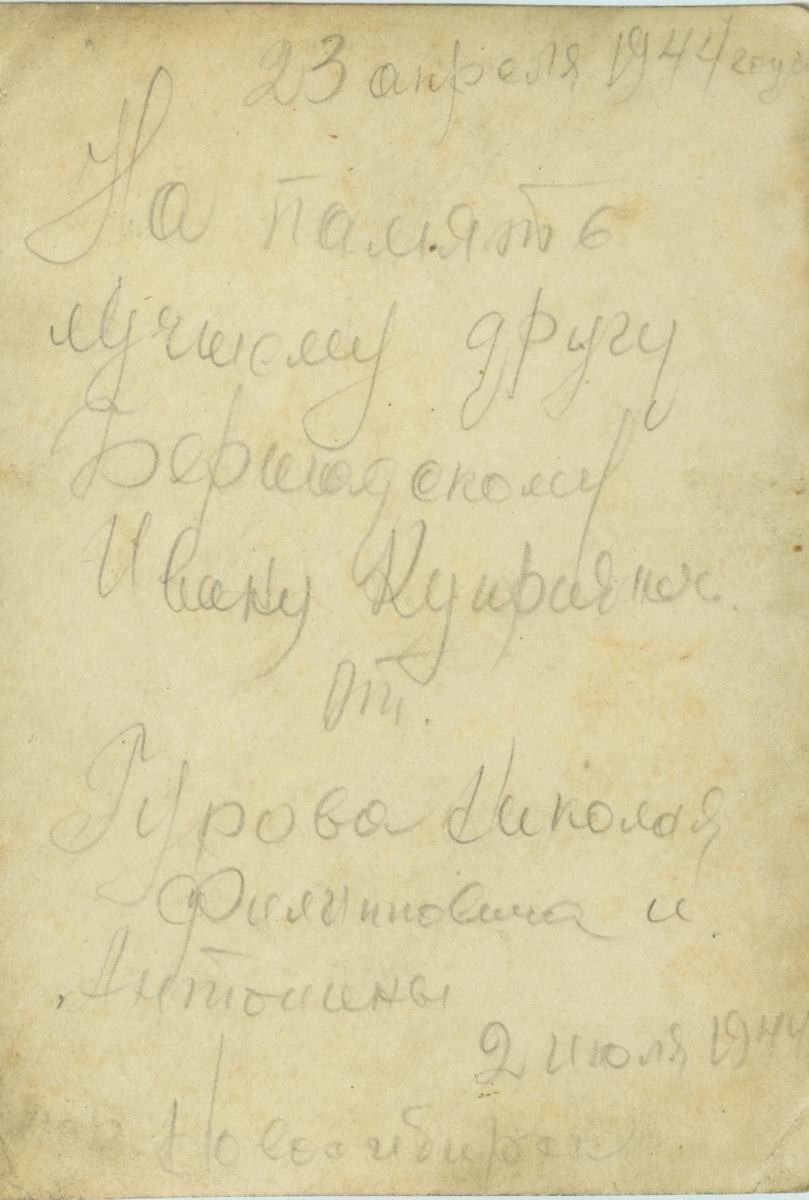 23 апреля 1944 года
На память
лучшему другу
Бершадскому
Ивану Куприянов.
от.
Гурова Николая
Филипповича и
Антонины
2 июля 1944
Новосибирск